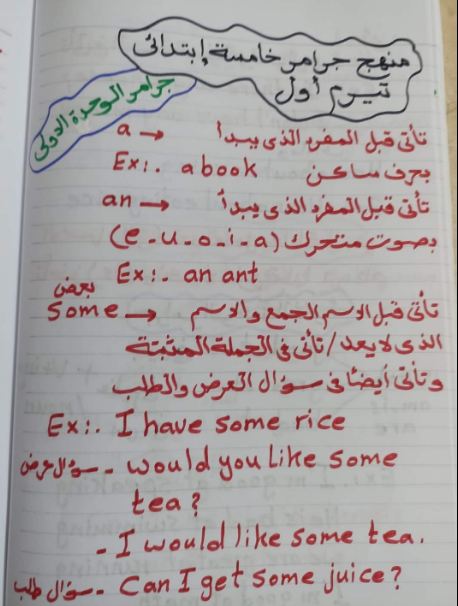 منهج جرامر خامسة إبتدائى
تيرم أول
جرامر الوحدة الاولى
a → تأتى قبل المفرد الذى يبدأ
بحرف ساكن Ex:. a book
an → تأتى قبل المفرد الذى يبدأ
بصوت متحرك (e-u-o-i-a)
Ex:- an ant
بعض
Some → تأتى قبل الاسم الجمع والاسم
الذى لا يعد / تأتى فى الجملة المثبتة
وتأتى أيضًا فى سؤال العرض والطلب
Ex:. I have some rice
سؤال عرض - would you like some
tea?
- I would like some tea.
سؤال طلب - Can I get some juice?